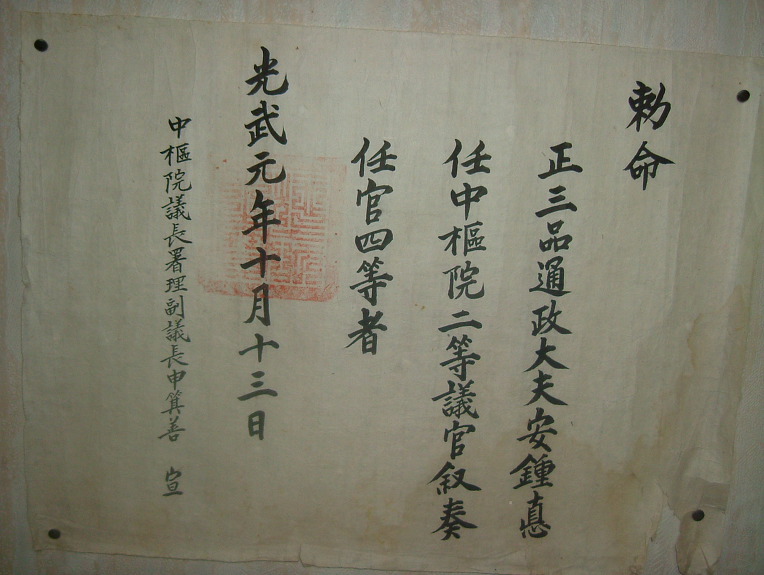 勅命
正三品通政大夫安鍾悳
任中樞院二等議官叙奏
任官四等者
光武元年十月十三日
中樞院議長署理副議長申箕善 宣